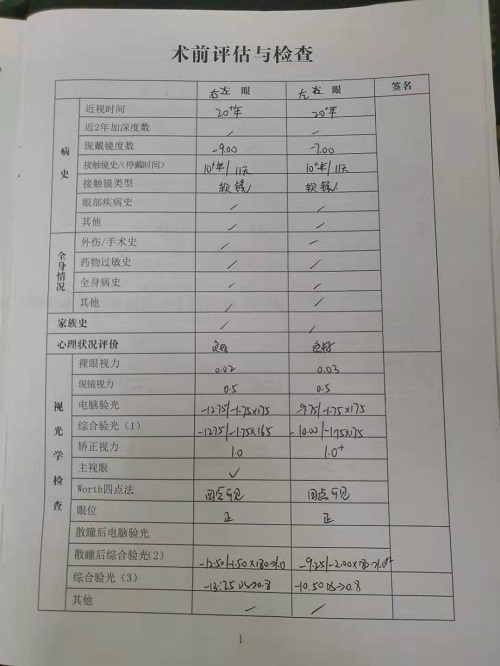 术前评估与检查
右左 眼 左右 眼 签名
病史
近视时间 20⁺年 20⁺年
近2年加深度数 / /
现戴镜度数 -9.00 -7.00
接触镜史/(停戴时间) 10⁺年/11天 10⁺年/11天
接触镜类型 软镜 软镜
眼部疾病史 / /
其他 / /
全身情况
外伤/手术史 / /
药物过敏史 / /
全身病史 / /
其他 / /
家族史 / /
心理状况评价 良好 良好
视光学检查
裸眼视力 0.02 0.03
现镜视力 0.5 0.5
电脑验光 -12.75/-1.75×175 -9.75/-1.75×175
综合验光(1) -12.75/-1.75×165 -10.00/-1.75×175
矫正视力 1.0 1.0⁺
主视眼 ✓
Worth四点法 四点可见 四点可见
眼位 正 正
散瞳后电脑验光
散瞳后综合验光(2) -12.50/-1.50×180→1.0 -9.25/-2.00×180→1.0⁺
综合验光(3) -13.25 DS→0.8 -10.50 DS→0.8
其他 / /
1